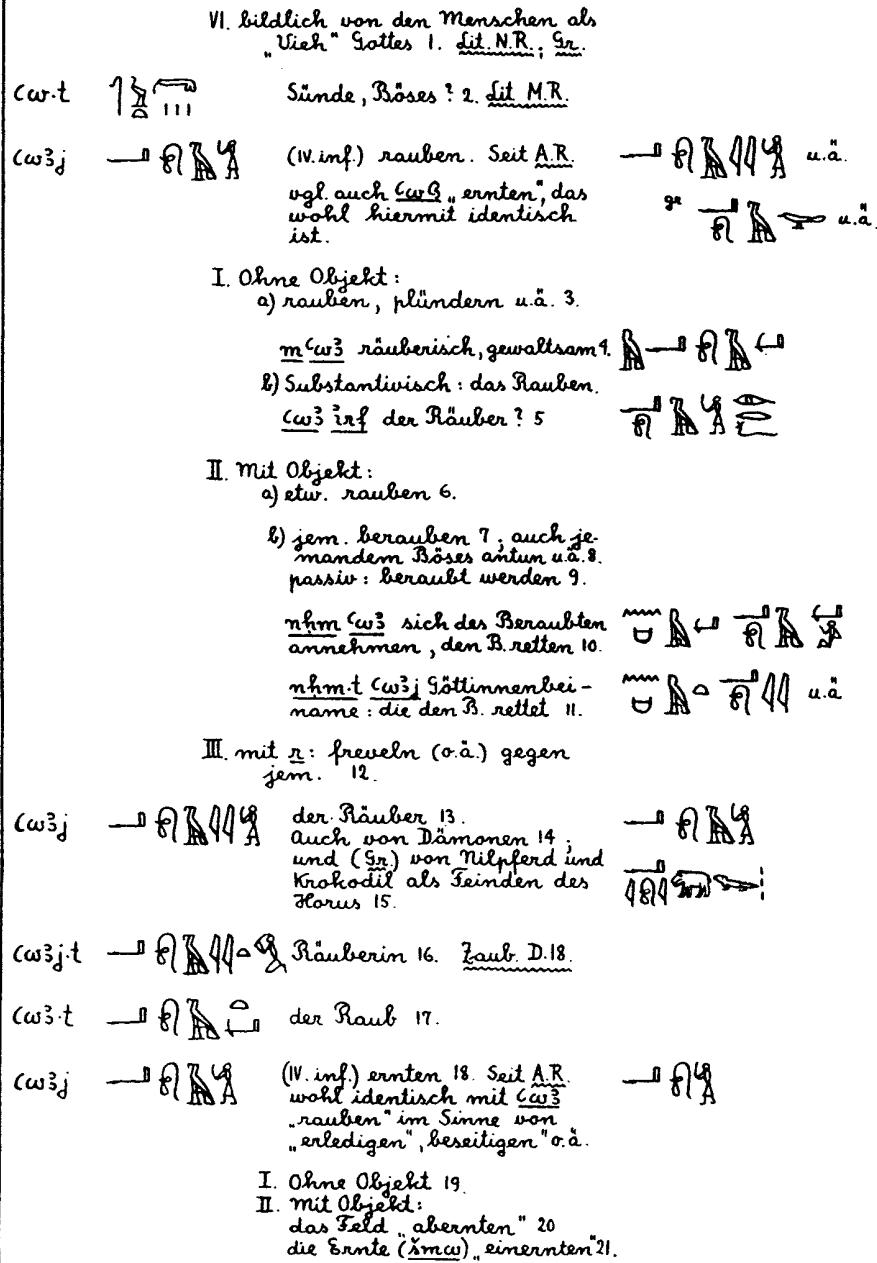 VI. bildlich von den Menschen als
„Vieh" Gottes 1. Lit. N.R.; Gr.
ꜥw·t Sünde, Böses? 2. Lit M.R.
ꜥwꜣj (IV. inf.) rauben. Seit A.R. u.ä.
vgl. auch ꜥwꜣ „ernten", das
wohl hiermit identisch gr u.ä.
ist.
I. Ohne Objekt:
a) rauben, plündern u.ä. 3.
m ꜥwꜣ räuberisch, gewaltsam 4.
b) Substantivisch: das Rauben.
ꜥwꜣ irf der Räuber? 5
II. Mit Objekt:
a) etw. rauben 6.
b) jem. berauben 7; auch je-
mandem Böses antun u.ä. 8.
passiv: beraubt werden 9.
nḥm ꜥwꜣ sich des Beraubten
annehmen, den B. retten 10.
nḥm·t ꜥwꜣj Göttinnenbei-
name: die den B. rettet 11. u.ä
III. mit r: freveln (o.ä.) gegen
jem. 12.
ꜥwꜣj der Räuber 13.
Auch von Dämonen 14;
und (Gr.) von Nilpferd und
Krokodil als Feinden des
Horus 15.
ꜥwꜣj·t Räuberin 16. Zaub. D.18.
ꜥwꜣ·t der Raub 17.
ꜥwꜣj (IV. inf.) ernten 18. Seit A.R.
wohl identisch mit ꜥwꜣ
„rauben" im Sinne von
„erledigen", beseitigen" o.ä.
I. Ohne Objekt 19
II. Mit Objekt:
das Feld „abernten" 20
die Ernte (šmw) „einernten" 21.